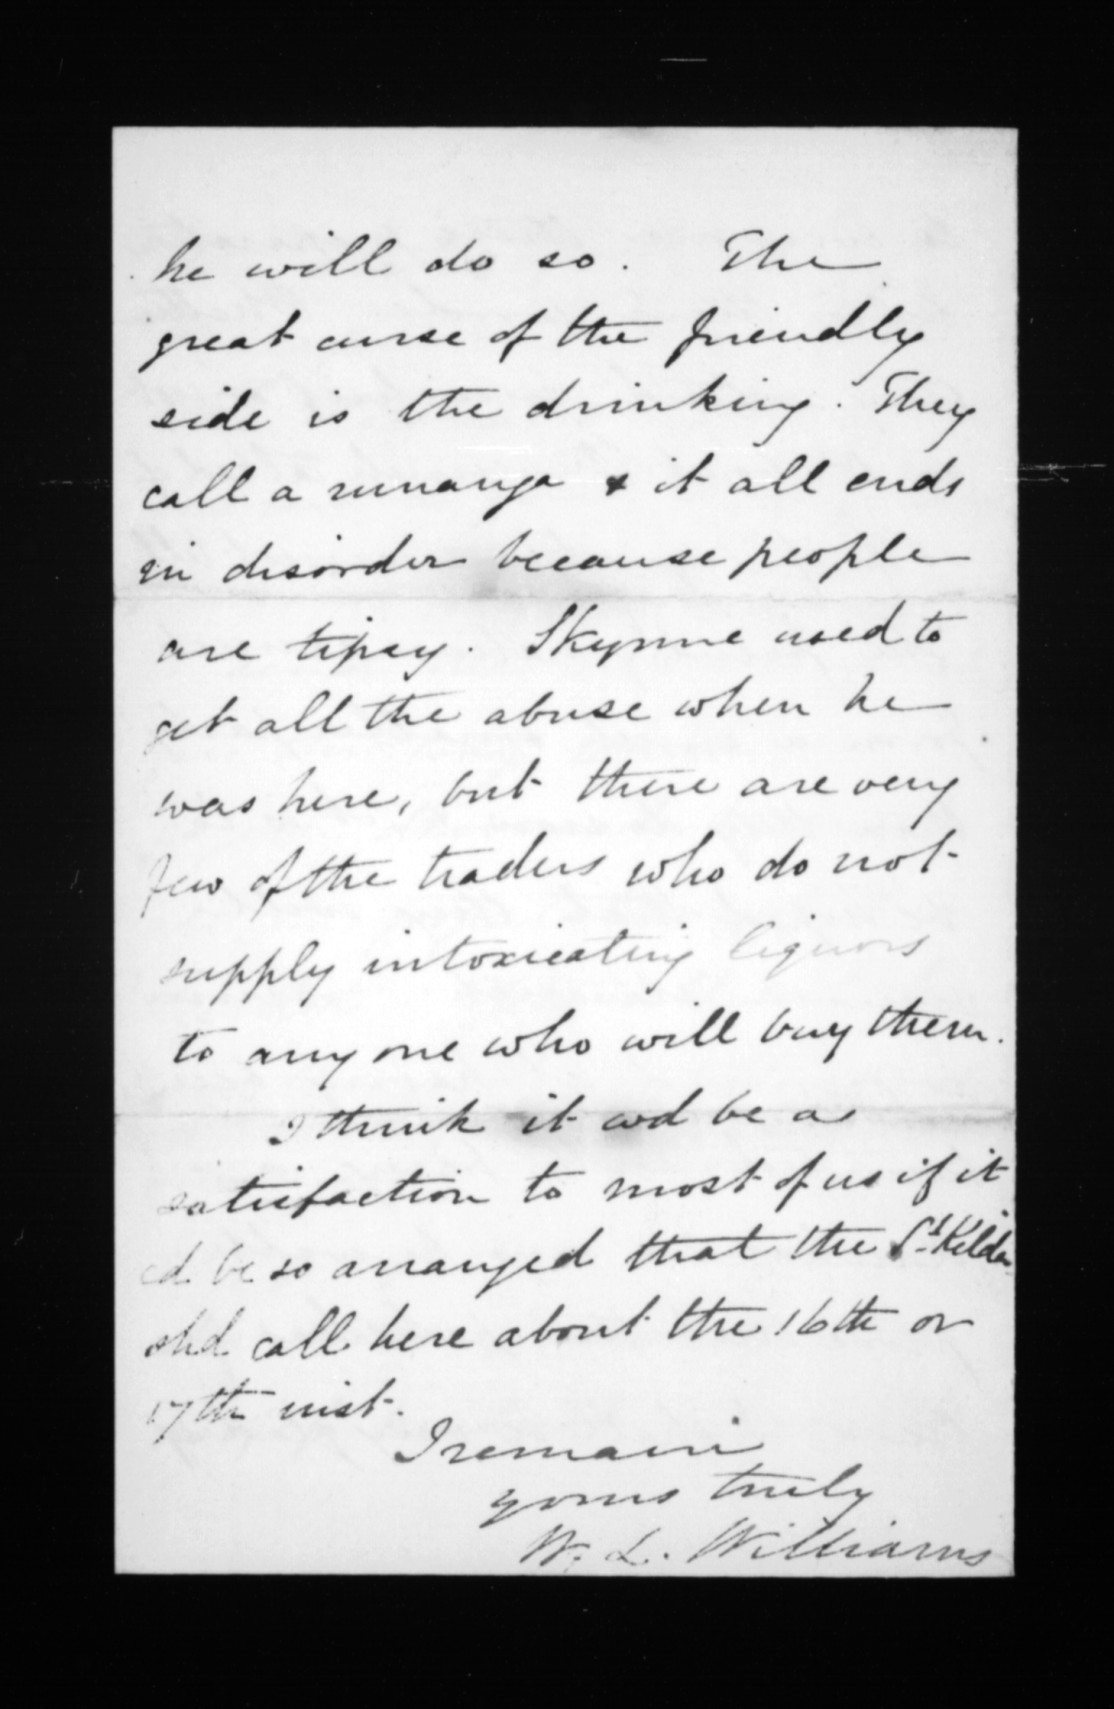 he will do so. The
great curse of the friendly
side is the drinking. They
call a runanga & it all ends
in disorder because people
are tipsy. Skynne used to
get all the abuse when he
was here, but there are very
few of the traders who do not
supply intoxicating liquors
to any one who will buy them.
I think it wd be a
satisfaction to most of us if it
cd be so arranged that the St. Kilda
shd call here about the 16th or
17th inst.
I remain
yours truly
W. L. Williams